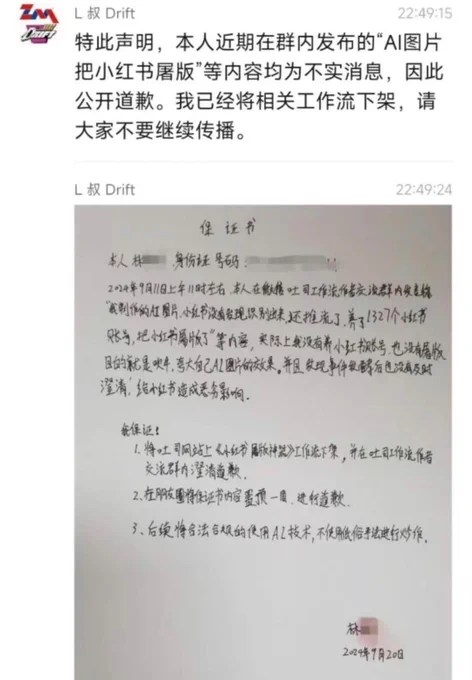 L 叔 Drift
22:49:15
特此声明，本人近期在群内发布的“AI图片
把小红书屠版”等内容均为不实消息，因此
公开道歉。我已经将相关工作流下架，请
大家不要继续传播。
L 叔 Drift
22:49:24
保证书
本人林 身份证号码:
2024年9月11日上午11时左右,本人在微信吐司工作流作者交流群内
"我制作的AI图片,小红书没有发现识别出来,还推流了,养了1327个小红书
账号,把小红书屠版了"等内容,实际上我没有养小红书账号,也没有屠版
目的就是吹牛,夸大自己AI图片的效果。并且发现事件发酵后也没有及时
澄清,给小红书造成恶劣影响。
我保证:
1、将吐司网站上《小红书屠版神器》工作流下架,并在吐司工作流作者
交流群内澄清道歉.
2、在朋友圈将保证书内容置顶一周,进行道歉.
3、后续将合法合规的使用AI技术,不使用低俗手法进行炒作.
林
2024年9月20日